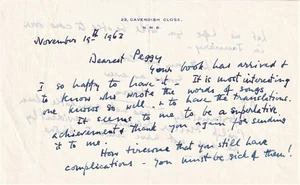 22, CAVENDISH CLOSE,
N.W.8.
November 19th 1962
Dearest Peggy
Your book has arrived &
I so happy to have it. It is most interesting
to know who wrote the words of songs
one knows so well, & to have the translations.
It seems to me to be a superlative
achievement & thank you again for sending
it to me.
How tiresome that you still have
complications - you must be sick of them!